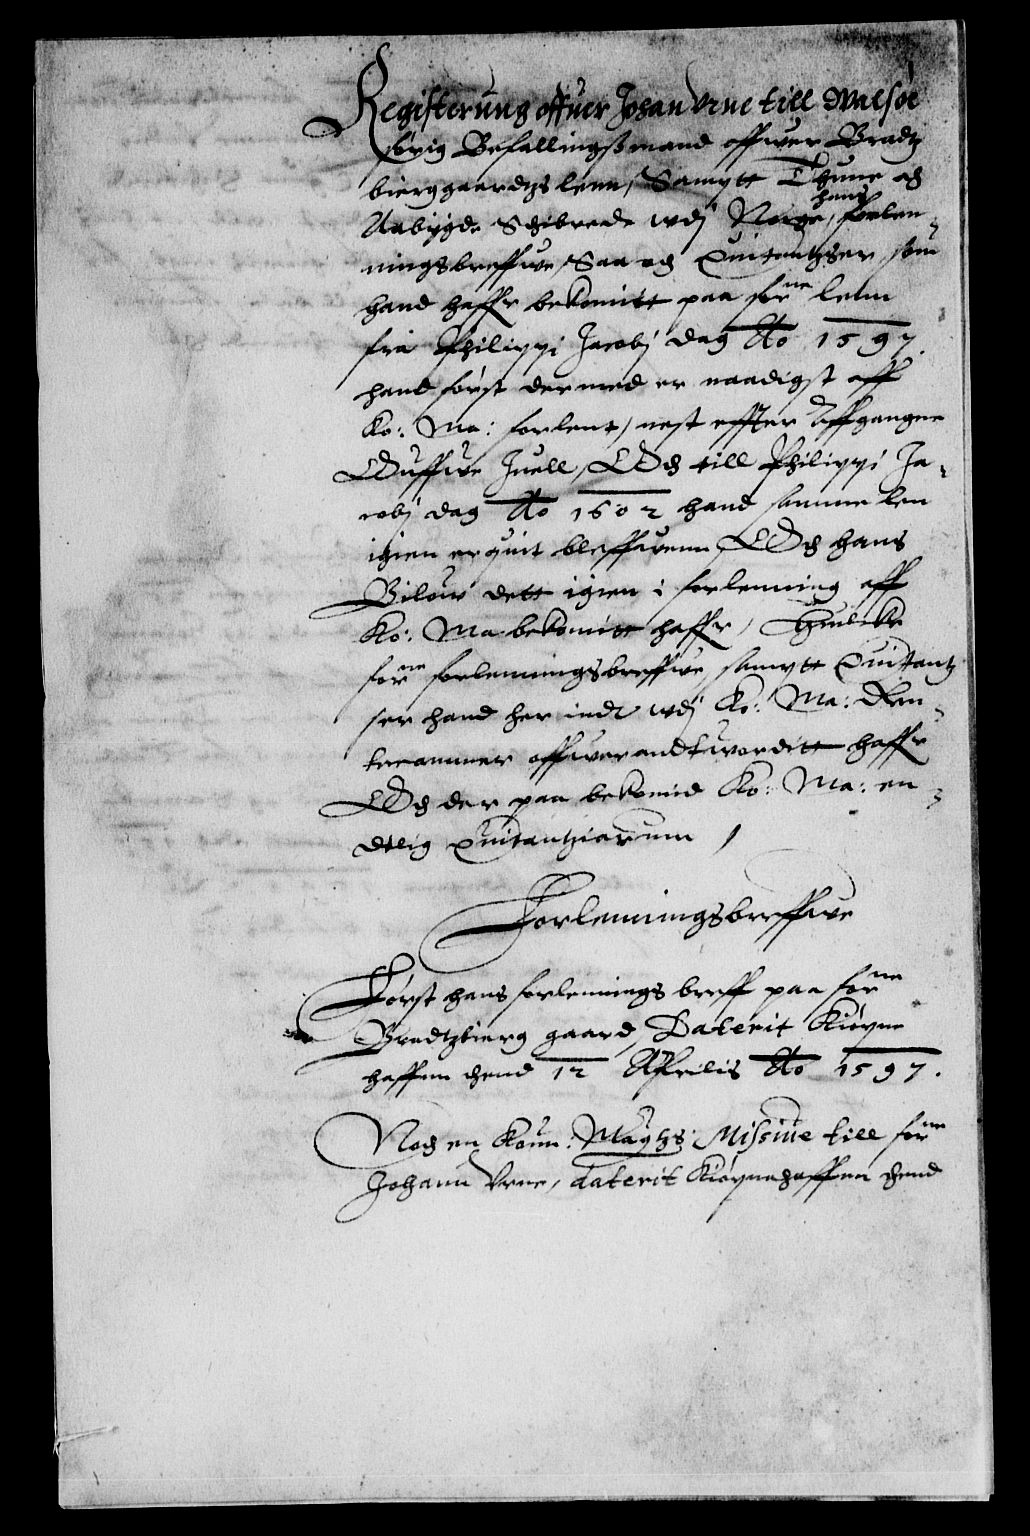 Registerung offuer Johan Vrne till Walsøe
førig Befallingsmand offwer Bradtz
bierggaardtzs lenn, Sampt Thune och
Aabÿgde Schibrede wdj Norge, hans forlen¬
ningsbreffwe, Saa och Quitantzer som
hand haffr bekomitt paa forne lenn
fra Philippi Jacobj dag Ao 1597.
hand først dermed er naadigst aff
Ko: Ma: forlent, nest effter Affgangne
Wuffwe Juell, Och till Philippi Ja¬
cobj dag Ao 1602 hand samme len
igien er quit bleffwenn, Och hans
Bilow dett igien i forlenning aff
Ko: Ma bekomitt haffr, Huilcke
forne forlenningsbreffwe, sampt Quitantz
ser hand her indt wdj Ko: Ma: Ren¬
tecammer offwerandtwordit haffr
Och der paa bekomid Ko: Ma: en¬
dtlig Quitantziarum /
Forlenningsbreffwe
Først hans forlennings breff paa forne
Bradtzbierg gaard, Daterit Kiøpne
haffnn thend 12 Aprilis Ao 1597.
Noch en Konn: Maytzs: Missiue till forne
Johann Vrne, daterit Kiøpnehaffnn thend